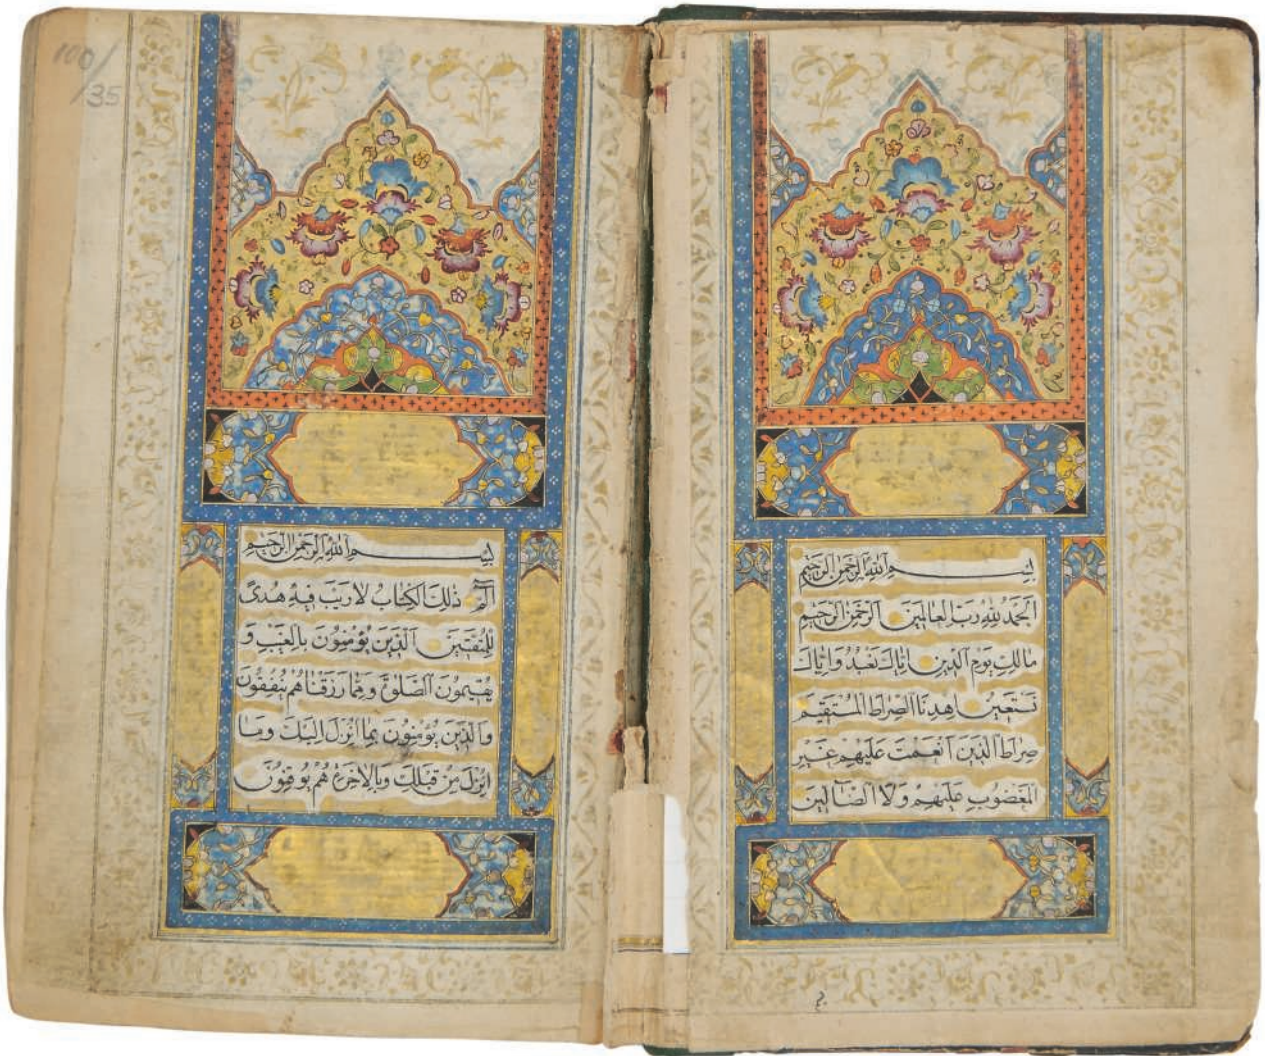 بِسْمِ اللهِ الرَّحْمٰنِ الرَّحِيْمِ
اَلْحَمْدُ لِلّٰهِ رَبِّ الْعَالَمِيْنَ الرَّحْمٰنِ الرَّحِيْمِ
مَالِكِ يَوْمِ الدِّيْنِ اِيَّاكَ نَعْبُدُ وَاِيَّاكَ
نَسْتَعِيْنُ اِهْدِنَا الصِّرَاطَ الْمُسْتَقِيْمَ
صِرَاطَ الَّذِيْنَ اَنْعَمْتَ عَلَيْهِمْ غَيْرِ
الْمَغْضُوْبِ عَلَيْهِمْ وَلَا الضَّالِّيْنَ
بِسْمِ اللهِ الرَّحْمٰنِ الرَّحِيْمِ
الٓمٓ ذٰلِكَ الْكِتَابُ لَا رَيْبَ فِيْهِ هُدًى
لِلْمُتَّقِيْنَ الَّذِيْنَ يُؤْمِنُوْنَ بِالْغَيْبِ وَ
يُقِيْمُوْنَ الصَّلٰوةَ وَمِمَّا رَزَقْنَاهُمْ يُنْفِقُوْنَ
وَالَّذِيْنَ يُؤْمِنُوْنَ بِمَا اُنْزِلَ اِلَيْكَ وَمَا
اُنْزِلَ مِنْ قَبْلِكَ وَبِالْاٰخِرَةِ هُمْ يُوْقِنُوْنَ
100/
135